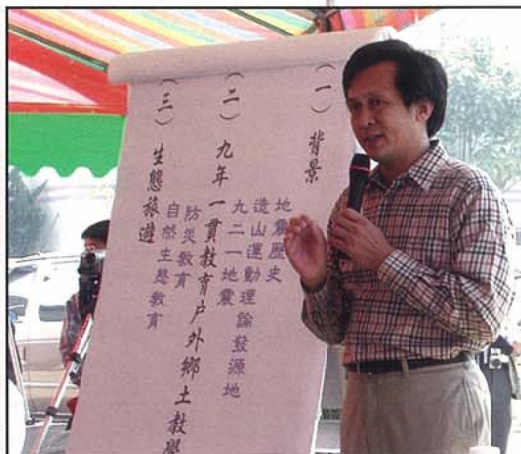 (一) 背景
地震歷史
造山運動理論發源地
九二一地震
(二) 九年一貫教育户外鄉土教學
防災教育
自然生態教育
(三) 生態旅遊